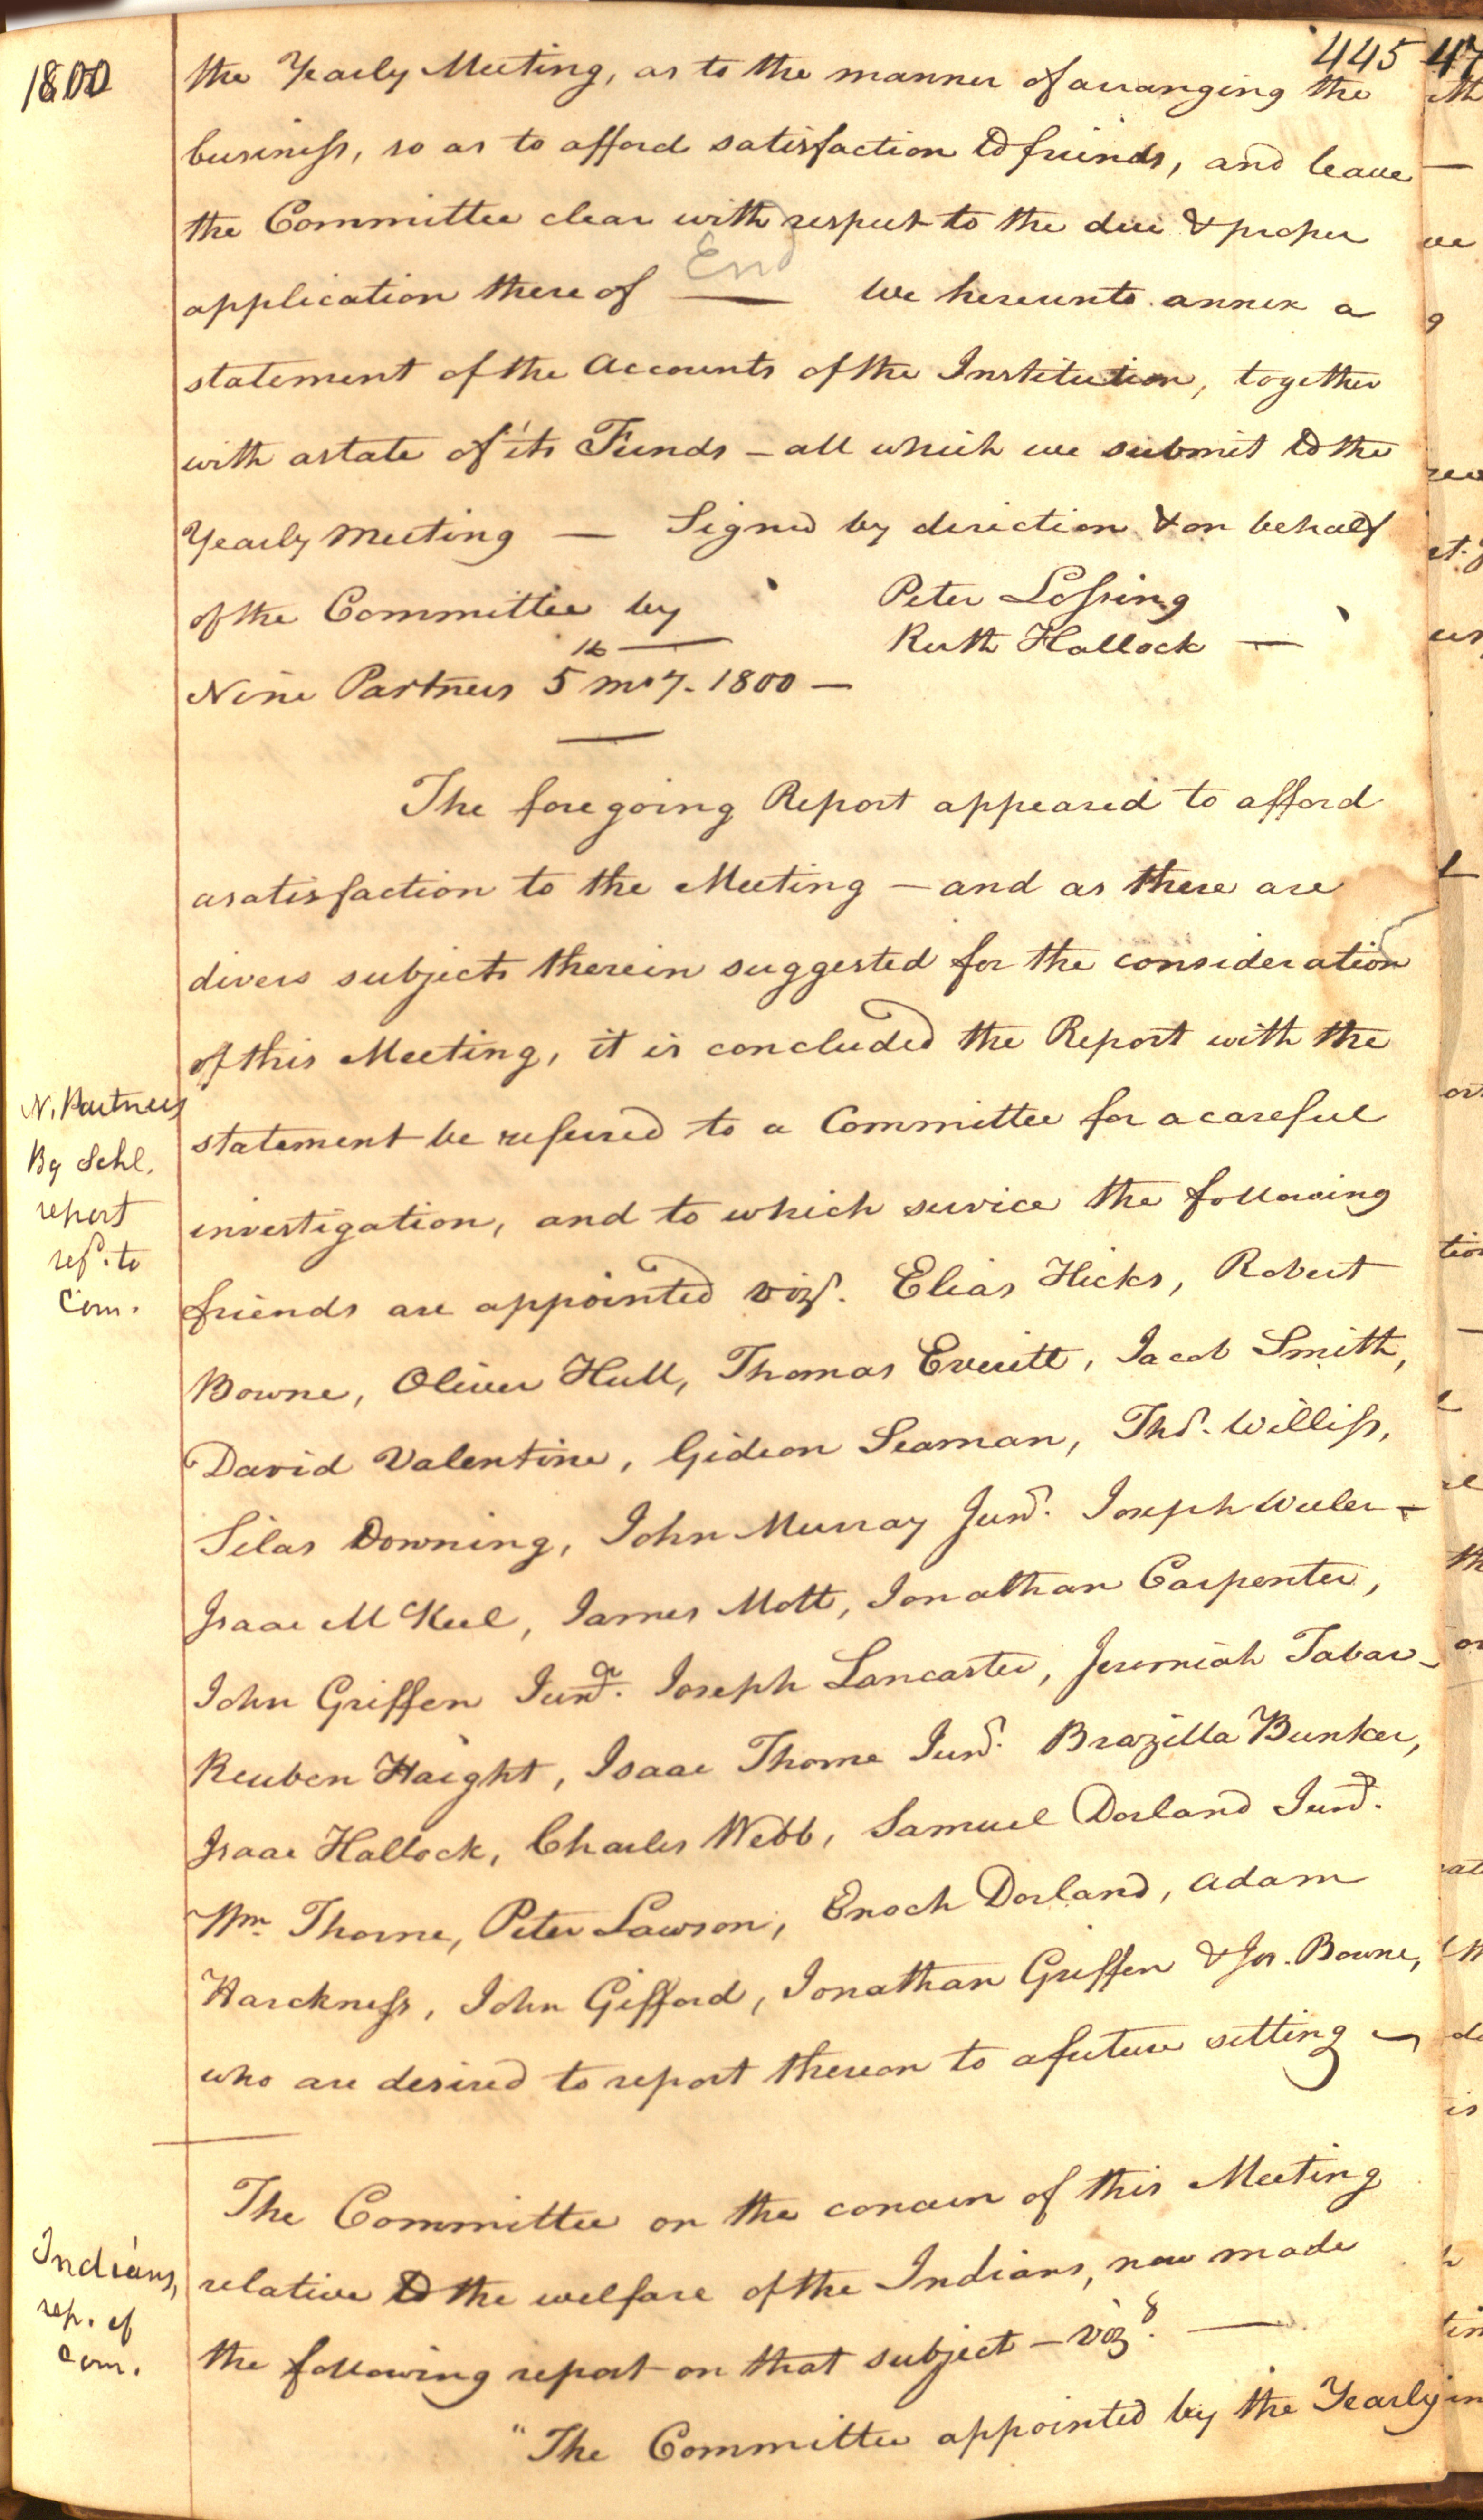 445
1800
the Yearly Meeting, as to the manner of arranging the
business, so as to afford satisfaction to friends, and leave
the Committee clear with respect to the due & proper
End
application there of — We hereunto annex a
statement of the Accounts of the Institution, together
with a state of its Funds – all which we submit to the
Yearly Meeting — Signed by direction & on behalf
of the Committee by Peter Lossing
Ruth Hallock —
Nine Partners 5 mo 7. 1800 —
The foregoing Report appeared to afford
a satisfaction to the Meeting – and as there are
divers subjects therein suggested for the consideration
of this Meeting, it is concluded the Report with the
N. Partners
statement be referred to a Committee for a careful
Bg Schl.
report
investigation, and to which service the following
ref. to
Com.
friends are appointed viz. Elias Hicks, Robert
Bowne, Oliver Hull, Thomas Everitt, Jacob Smith,
David Valentine, Gideon Seaman, Thos. Williss,
Silas Downing, John Murray Junr. Joseph Weeler –
Isaac McKeel, James Mott, Jonathan Carpenter,
John Griffen Junr. Joseph Lancaster, Jeremiah Tabar –
Reuben Haight, Isaac Thorne Junr. Brazilla Bunker,
Isaac Hallock, Charles Webb, Samuel Dorland Junr.
Wm. Thorne, Peter Lawson, Enoch Dorland, Adam
Harckness, John Gifford, Jonathan Griffen & Jos. Bowne,
who are desired to report thereon to a future sitting –
The Committee on the concern of this Meeting
Indians,
relative to the welfare of the Indians, now made
rep. of
Com.
the following report on that subject – viz. —
"The Committee appointed by the Yearly